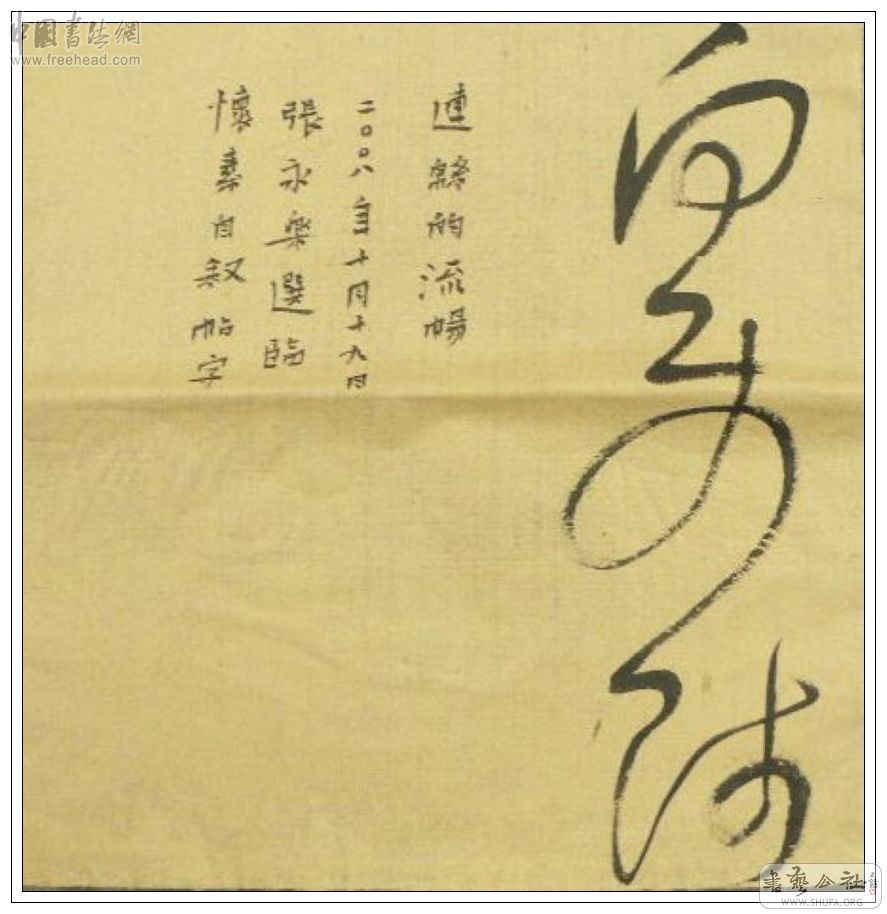 中国书法網
www.freehead.com
連緜的流暢
二〇〇八年十月十九日
張永樂選臨
懷素自叙帖字
書藝公社
WWW.SHUFA.ORG